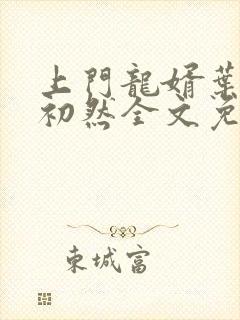 上門龍婿葉
初然全文免
東城富